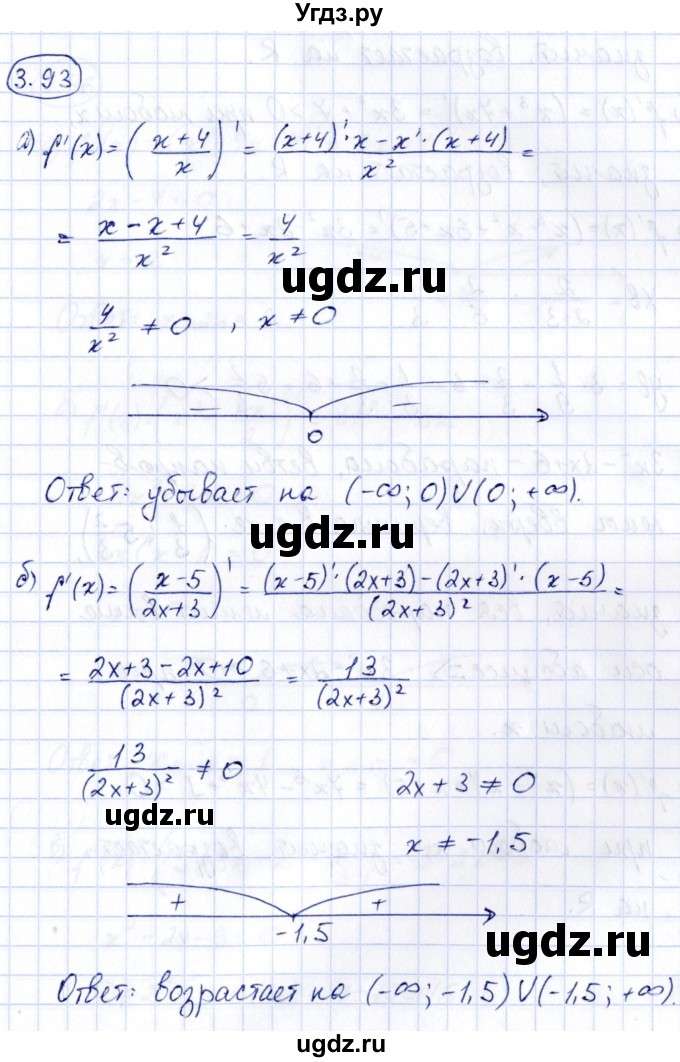 Угдз.ру
3.93
а) f'(x) = ((x+4)/x)' = ((x+4)'·x − x'·(x+4))/x² =
= (x−x+4)/x² = 4/x²
ugdz.ru
4/x² ≠ 0 , x ≠ 0
− −
0
Ответ: убывает на (−∞; 0)∪(0; +∞).
ugdz.ru
б) f'(x) = ((x−5)/(2x+3))' = ((x−5)'·(2x+3) − (2x+3)'·(x−5))/(2x+3)² =
= (2x+3−2x+10)/(2x+3)² = 13/(2x+3)²
13/(2x+3)² ≠ 0 2x+3 ≠ 0
ugdz.ru
x ≠ −1,5
+ +
−1,5
ugdz.ru
Ответ: возрастает на (−∞; −1,5)∪(−1,5; +∞).